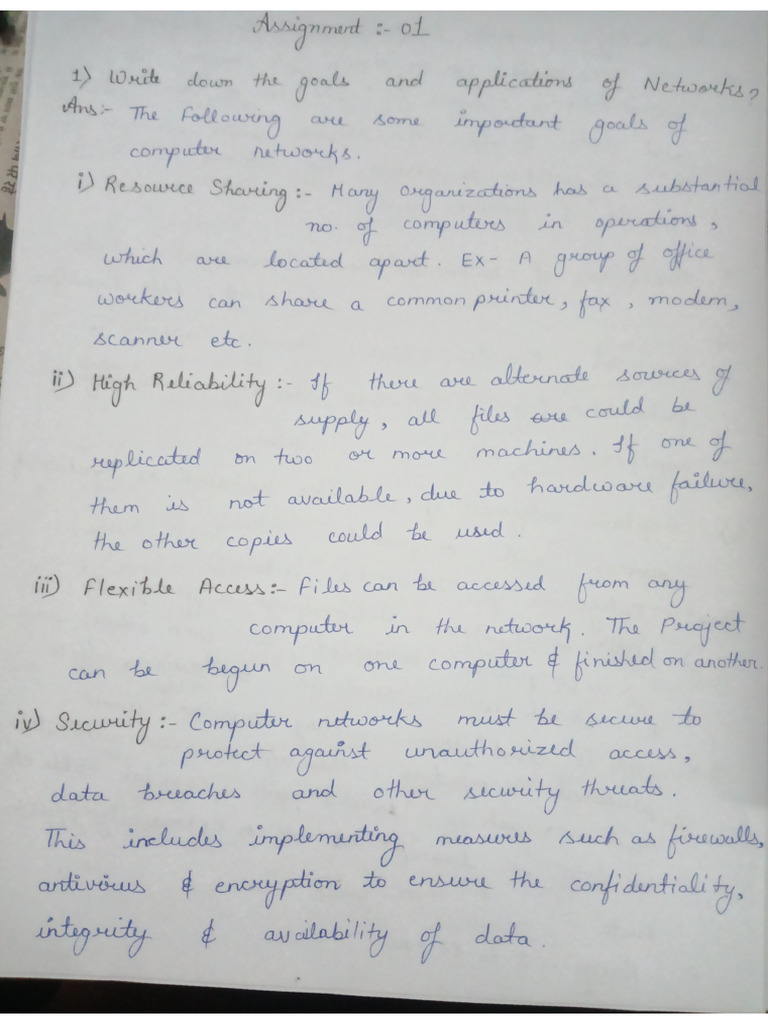 Assignment :- 01
1) Write down the goals and applications of Networks?
Ans:- The Following are some important goals of
computer networks.
i) Resource Sharing :- Many organizations has a substantial
no. of computers in operations,
which are located apart. Ex- A group of office
workers can share a common printer, fax, modem,
scanner etc.
ii) High Reliability :- If there are alternate sources of
supply, all files are could be
replicated on two or more machines. If one of
them is not available, due to hardware failure,
the other copies could be used.
iii) Flexible Access :- Files can be accessed from any
computer in the network. The Project
can be begun on one computer & finished on another.
iv) Security :- Computer networks must be secure to
protect against unauthorized access,
data breaches and other security threats.
This includes implementing measures such as firewalls,
antivirus & encryption to ensure the confidentiality,
integrity & availability of data.